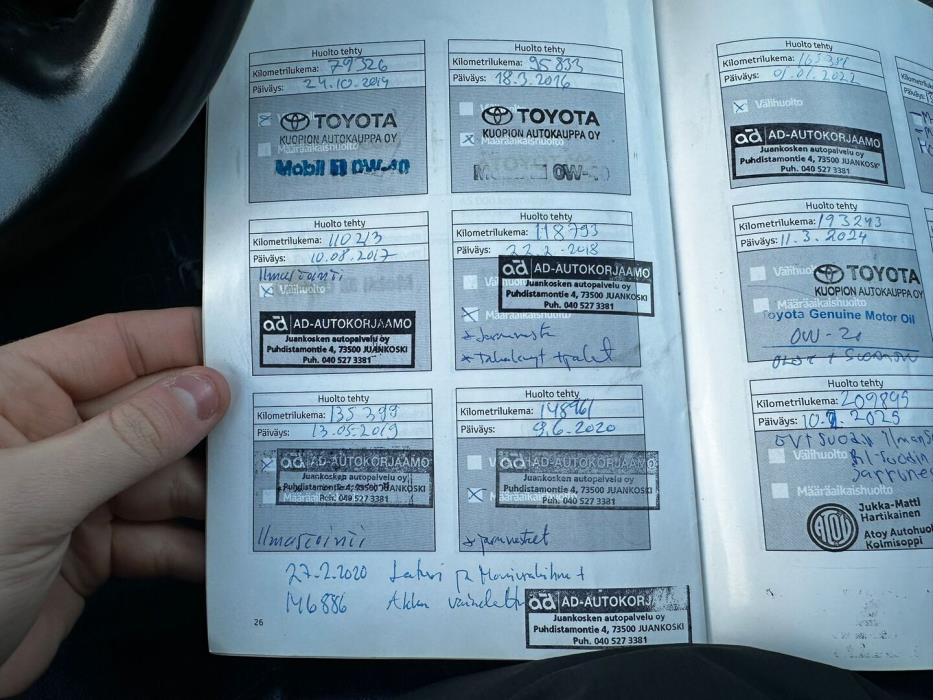 Huolto tehty
Kilometrilukema: 79326
Päiväys: 24.10.2014
TOYOTA
KUOPION AUTOKAUPPA OY
Määräaikaishuolto
Mobil 1 0W-40
Huolto tehty
Kilometrilukema: 95833
Päiväys: 18.3.2016
TOYOTA
KUOPION AUTOKAUPPA OY
Määräaikaishuolto
Mobil 1 0W-40
Huolto tehty
Kilometrilukema: 110213
Päiväys: 10.08.2017
Ilmastointi
Välihuolto
ad AD-AUTOKORJAAMO
Juankosken autopalvelu oy
Puhdistamontie 4, 73500 JUANKOSKI
Puh. 040 527 3381
Huolto tehty
Kilometrilukema: 118793
Päiväys: 22.2.2018
ad AD-AUTOKORJAAMO
Juankosken autopalvelu oy
Puhdistamontie 4, 73500 JUANKOSKI
Puh. 040 527 3381
* Jarruneste
Huolto tehty
Kilometrilukema: 135399
Päiväys: 13.05.2019
ad AD-AUTOKORJAAMO
Juankosken autopalvelu oy
Puhdistamontie 4, 73500 JUANKOSKI
Puh. 040 527 3381
Ilmastointi
Huolto tehty
Kilometrilukema: 148961
Päiväys: 9.6.2020
ad AD-AUTOKORJAAMO
Juankosken autopalvelu oy
Puhdistamontie 4, 73500 JUANKOSKI
Puh. 040 527 3381
* jarrunesteet
27.2.2020 Laturi ja Monivakihna +
146886 Akku
ad AD-AUTOKORJ
Juankosken autopalvelu oy
Puhdistamontie 4, 73500 JUANKOSKI
Puh. 040 527 3381
26
Huolto tehty
Kilometrilukema: 165381
Päiväys: 01.01.2022
Välihuolto
ad AD-AUTOKORJAAMO
Juankosken autopalvelu oy
Puhdistamontie 4, 73500 JUANKOSK
Puh. 040 527 3381
Huolto tehty
Kilometrilukema: 193243
Päiväys: 11.3.2024
Välihuol
TOYOTA
KUOPION AUTOKAUPPA OY
Määräaikaishuolto
Toyota Genuine Motor Oil
0W-20
Huolto tehty
Kilometrilukema: 209845
Päiväys: 10.9.2025
Välihuolto
Määräaikaishuolto
Jukka-Matti
Hartikainen
Atoy Autohuol
Kolmisoppi